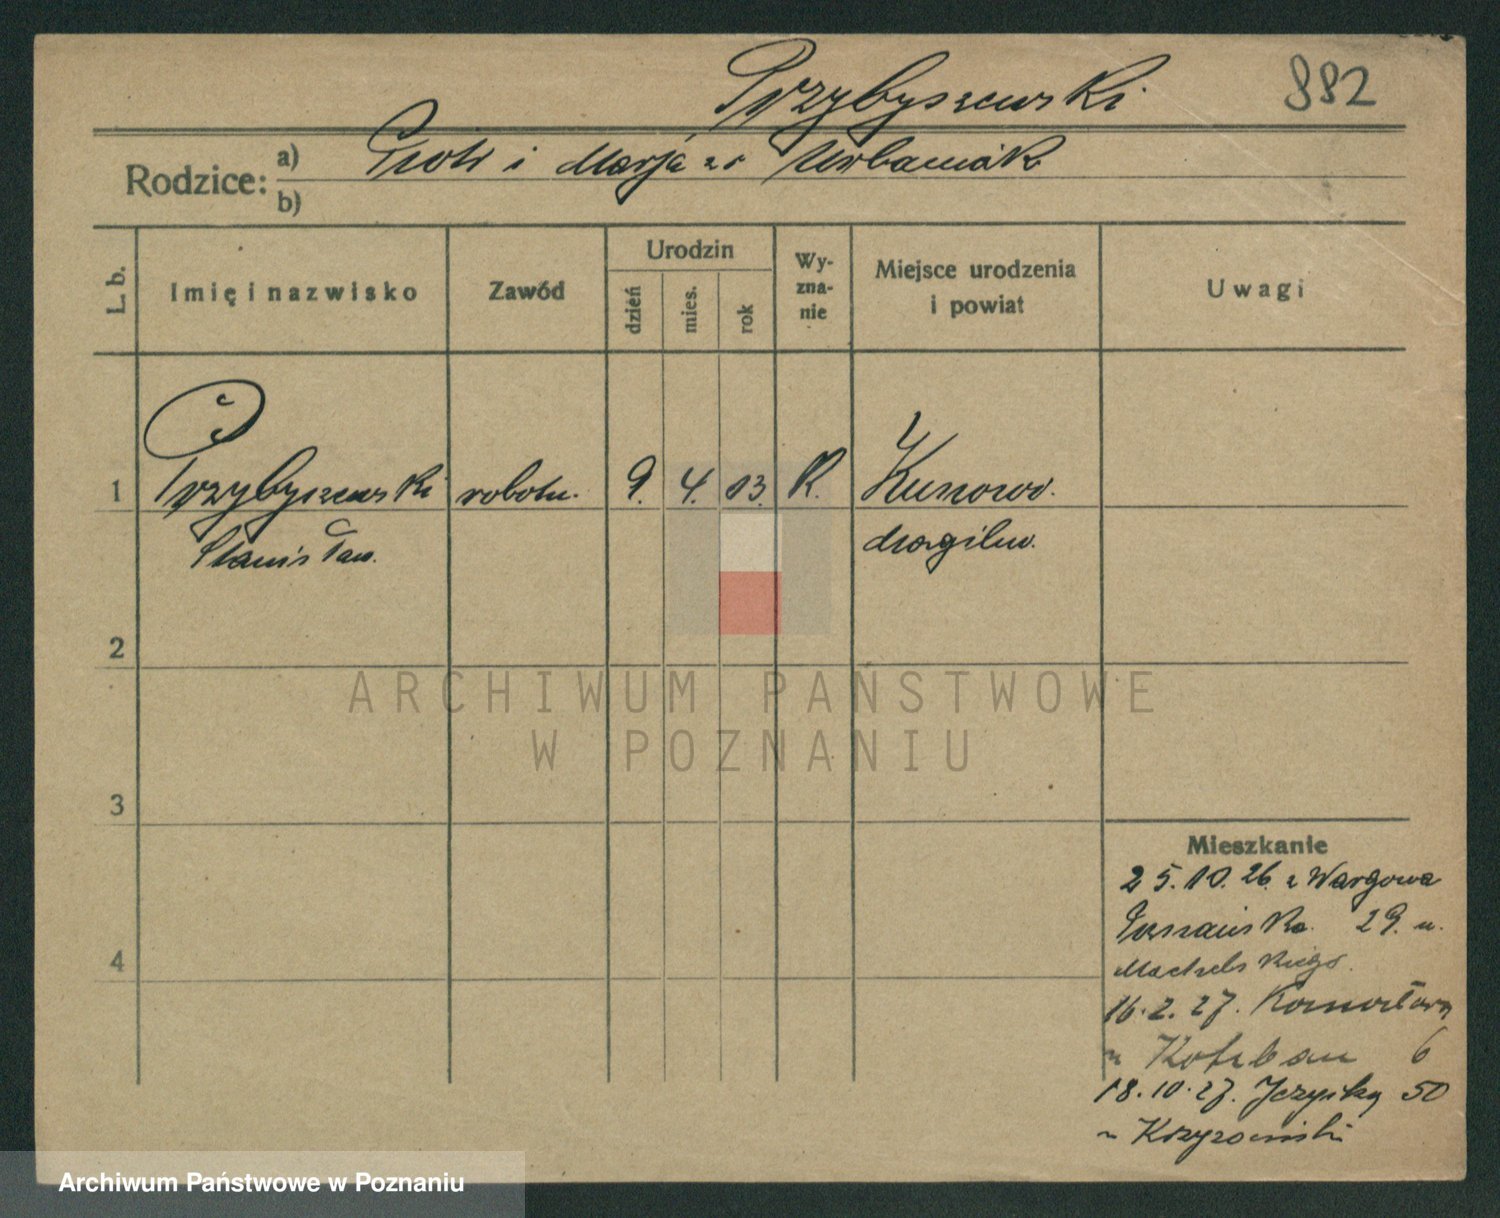 Przybyszewski 882
Rodzice: a) Piotr i Marja z d Urbaniak
b)
L. b. Imię i nazwisko Zawód Urodzin dzień mies. rok Wy-zna-nie Miejsce urodzenia i powiat Uwagi
1 Przybyszewski robotn. 9. 4. 13. R. Kunowo.
Stanisław.
2
3
4
Mieszkanie
25.10.26. z Wargowa
Poznańska 29. u.
16.2.27.
u 6
18.10.27. 50
u
ARCHIWUM PAŃSTWOWE
W POZNANIU
Archiwum Państwowe w Poznaniu